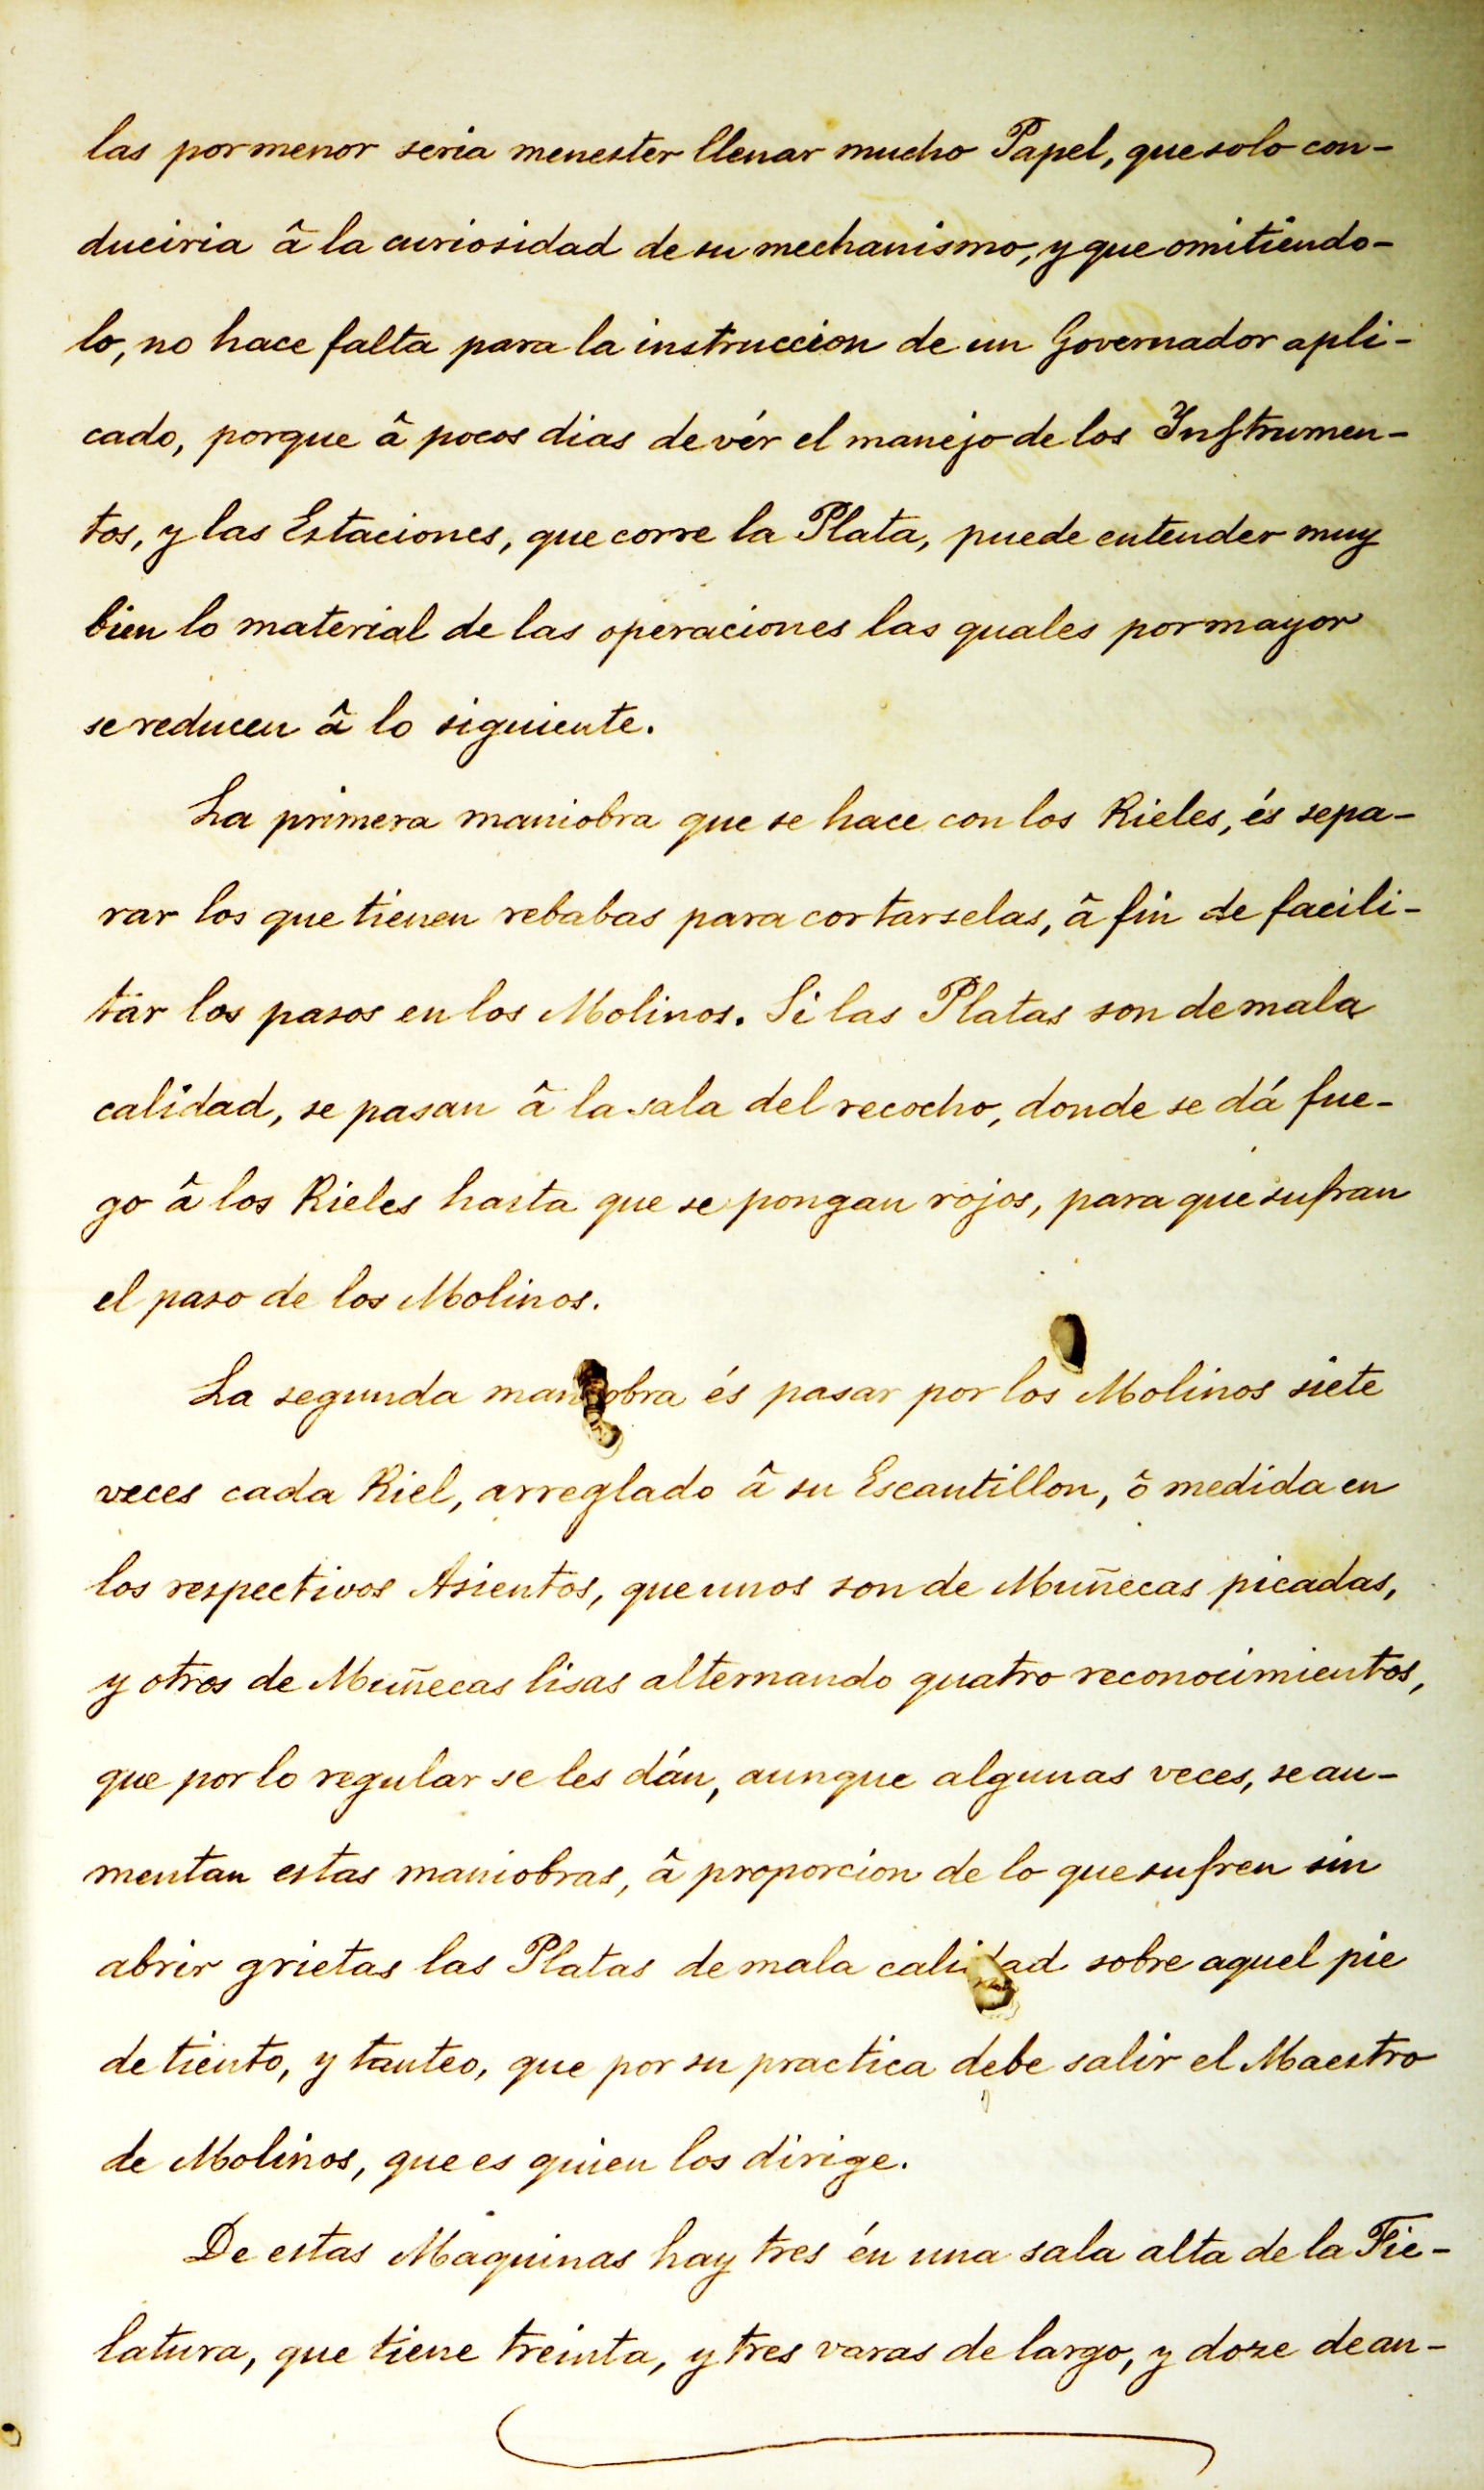 las por menor seria menester llenar mucho Papel, que solo con-
duciria â la curiosidad de su mechanismo, y que omitiendo-
lo, no hace falta para la instruccion de un Governador apli-
cado, porque â pocos dias de vér el manejo de los Instrumen-
tos, y las Estaciones, que corre la Plata, puede entender muy
bien lo material de las operaciones las quales por mayor
se reducen â lo siguiente.
La primera maniobra que se hace con los Rieles, és sepa-
rar los que tienen rebabas para cortarselas, â fin de facili-
tár los pasos en los Molinos. Si las Platas son de mala
calidad, se pasan â la sala del recocho, donde se dá fue-
go â los Rieles hasta que se pongan rojos, para que sufran
el paso de los Molinos.
La segunda maniobra és pasar por los Molinos siete
veces cada Riel, arreglado â su Escantillon, ô medida en
los respectivos Asientos, que unos son de Muñecas picadas,
y otros de Muñecas lisas alternando quatro reconocimientos,
que por lo regular se les dán, aunque algunas veces, se au-
mentan estas maniobras, â proporcion de lo que sufren sin
abrir grietas las Platas de mala calidad sobre aquel pie
de tiento, y tanteo, que por su practica debe salir el Maestro
de Molinos, que es quien los dirige.
De estas Maquinas hay tres én una sala alta de la Fie-
latura, que tiene treinta, y tres varas de largo, y doze de an-